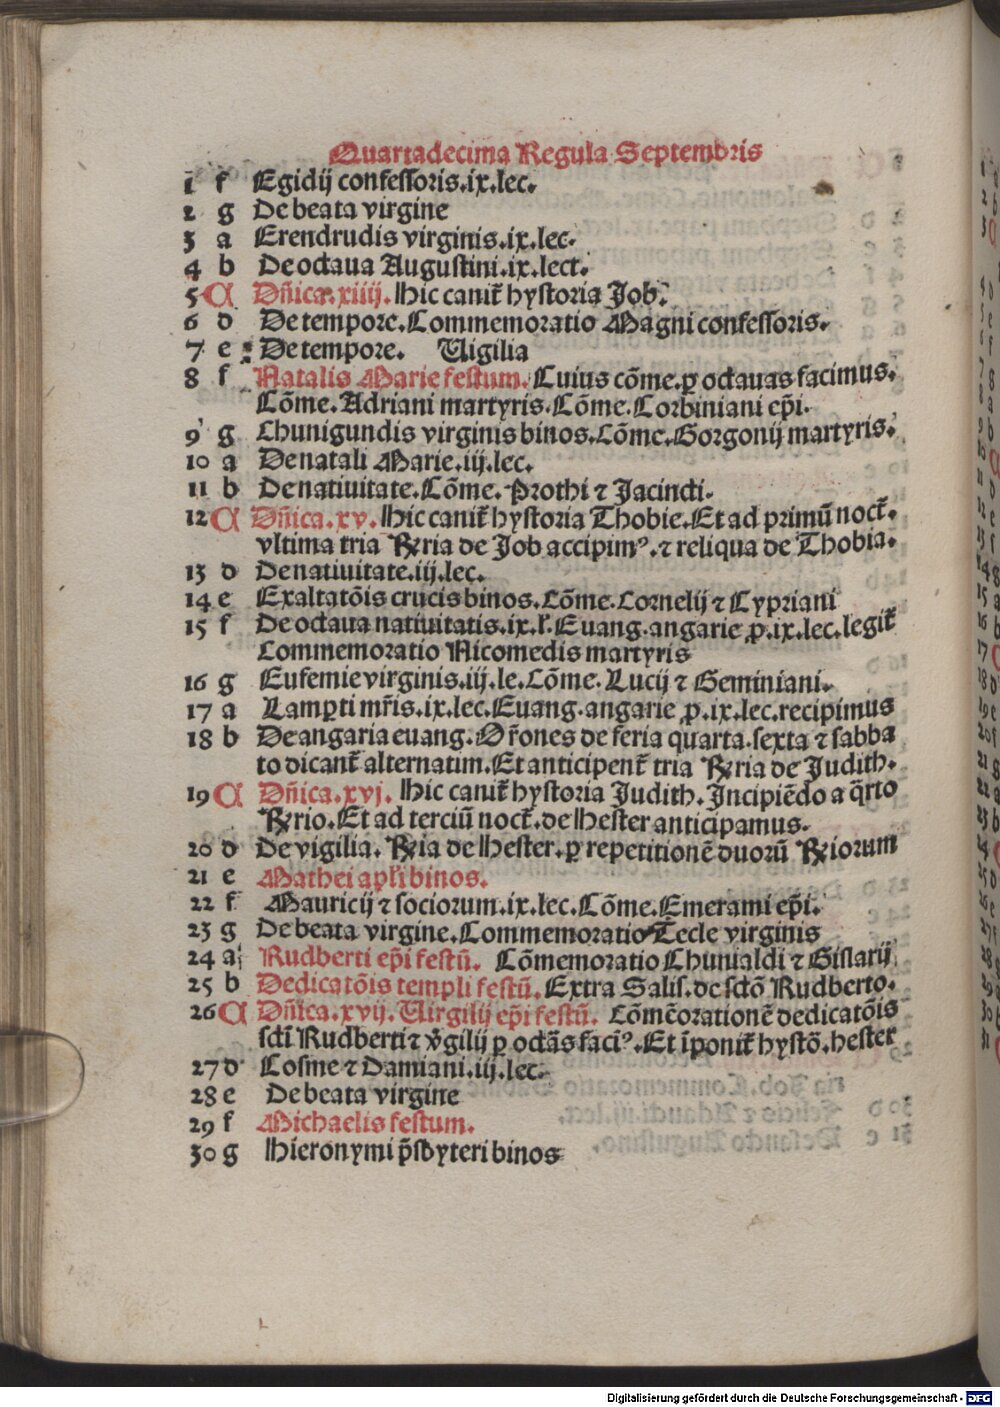 Quartadecima Regula Septembris
1 f Egidij confessoris.ix.lec.
2 g De beata virgine
3 a Erendrudis virginis.ix.lec.
4 b De octaua Augustini.ix.lect.
5 A Dñica.xiiij. Hic canit᷑ hystoria Job.
6 d De tempore.Commemoratio Magni confessoris.
7 e De tempore. Uigilia
8 f Natalis Marie festum. Cuius cõme.ꝑ octauas facimus.
Cõme.Adriani martyris.Cõme.Corbiniani ep̃i.
9 g Chunigundis virginis binos.Cõme.Gorgonij martyris.
10 a De natali Marie.iij.lec.
11 b De natiuitate.Cõme.Prothi ⁊ Jacincti.
12 A Dñica.xv. Hic canit᷑ hystoria Thobie.Et ad primũ noct᷑.
vltima tria ℞ria de Job accipimꝰ.⁊ reliqua de Thobia.
13 d De natiuitate.iij.lec.
14 e Exaltatõis crucis binos.Cõme.Cornelij ⁊ Cypriani
15 f De octaua natiuitatis.ix.l᷑.Euang.angarie ꝓ.ix.lec.legit᷑
Commemoratio Nicomedis martyris
16 g Eufemie virginis.iij.le.Cõme.Lucij ⁊ Geminiani.
17 a Lamꝑti mr̃is.ix.lec.Euang.angarie ꝓ.ix.lec.recipimus
18 b De angaria euang.Or̃ones de feria quarta.sexta ⁊ sabba
to dicant᷑ alternatim.Et anticipent᷑ tria ℞ria de Judith.
19 A Dñica.xvj. Hic canit᷑ hystoria Judith.Incipiẽdo a q̃rto
℞rio.Et ad terciũ noct᷑.de Hester anticipamus.
20 d De vigilia.℞ia de Hester.ꝑ repetitionẽ duorũ ℞iorum
21 e Mathei apl̃i binos.
22 f Mauricij ⁊ sociorum.ix.lec.Cõme.Emerami ep̃i.
23 g De beata virgine.Commemoratio Tecle virginis
24 a Rudberti ep̃i festũ. Cõmemoratio Chunialdi ⁊ Gislarij
25 b Dedicatõis templi festũ.Extra Salis.de sctõ Rudberto.
26 A Dñica.xvij.Uirgilij ep̃i festũ. Cõmẽorationẽ dedicatõis
sctĩ Rudberti ⁊ v̓gilij ꝑ octãs faciꝰ.Et ĩponit᷑ hystõ.hester
27 d Cosme ⁊ Damiani.iij.lec.
28 e De beata virgine
29 f Michaelis festum.
30 g Hieronymi p̃sbyteri binos
Digitalisierung gefördert durch die Deutsche Forschungsgemeinschaft - DFG